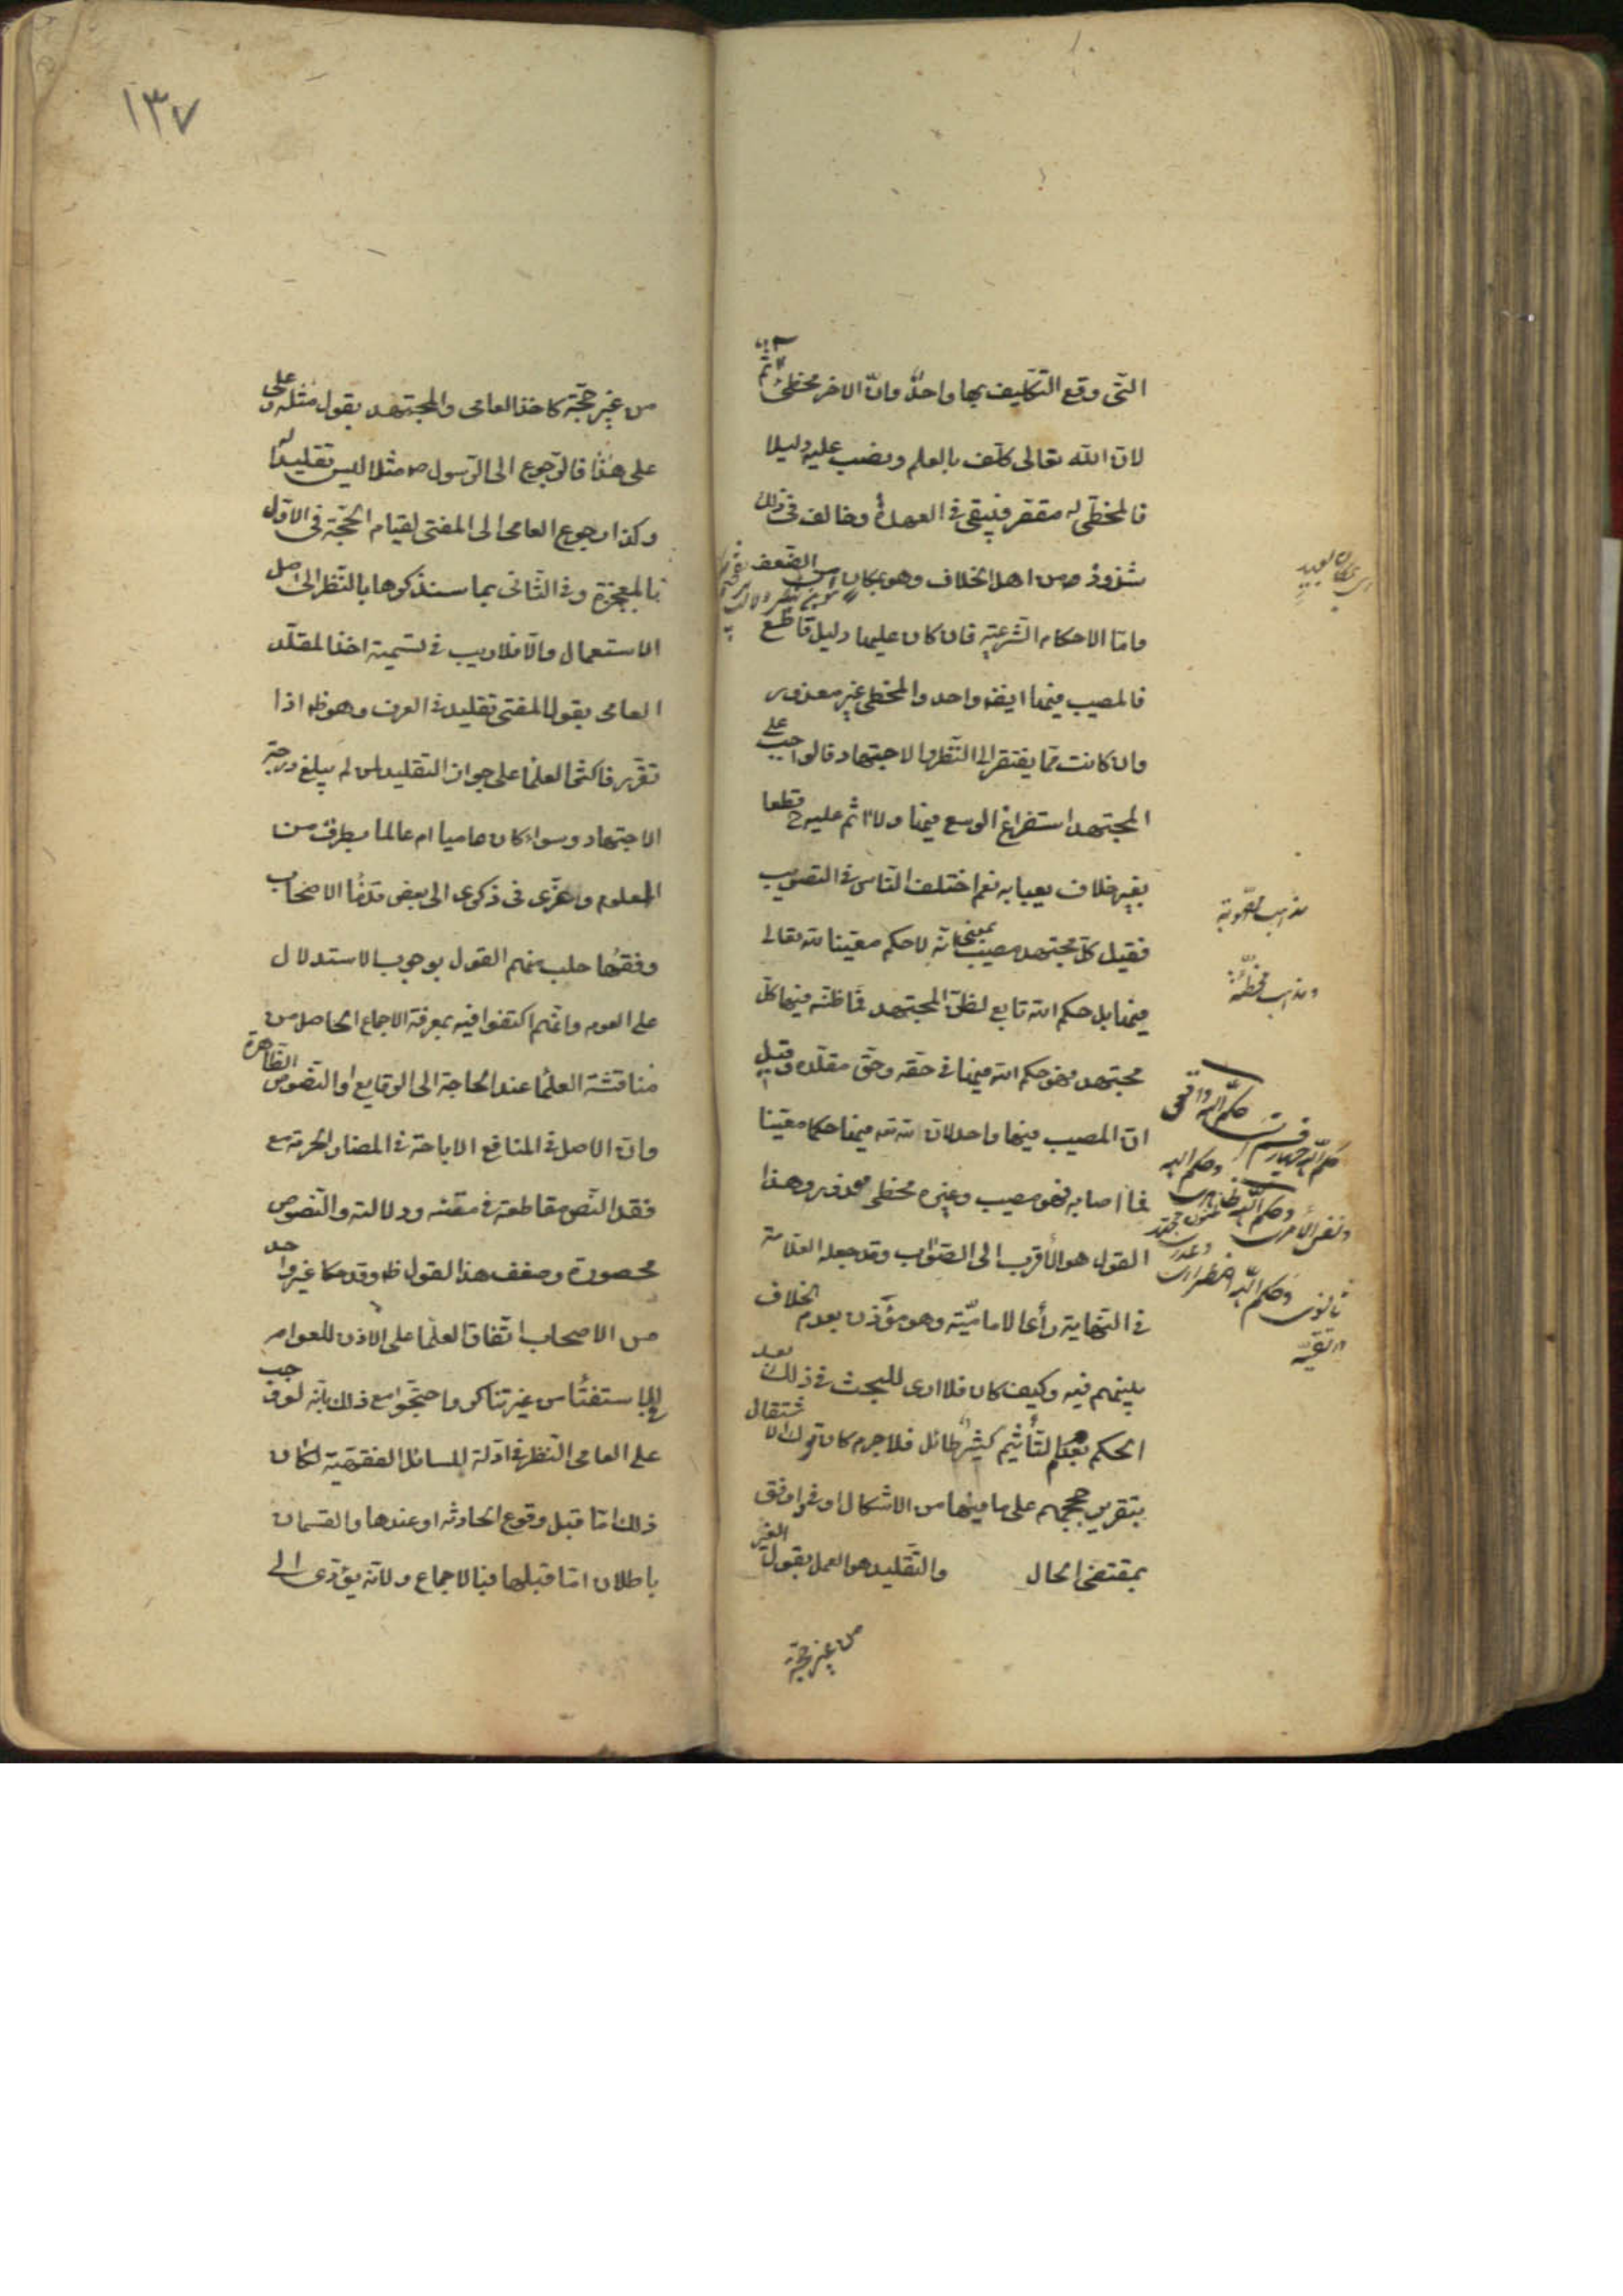 التی وقع التکلیف بها واحدٌ وانّ الاخر مخطئ اثم
لان الله تعالی کلّف بالعلم ونصب علیه دلیلا
فالمخطی له مقصر فیبقی فی العهدة وخالف فی ذلک
شذوذ من اهل الخلاف وهو بمکان من الضعف
واما الاحکام الشرعیة فان کان علیها دلیل قاطع
فالمصیب فیها ایضا واحد والمخطی غیر معذور
وان کانت مما یفتقر الی النظر والاجتهاد قالوا جب علی
المجتهد استفراغ الوسع فیها ولا اثم علیه ح قطعا
بغیر خلاف یعبأ به نعم اختلف الناس فی التصویب
فقیل کل مجتهد مصیب بمعنی انه لا حکم معینا لله تعالی
فیها بل حکم الله تابع لظن المجتهد فما ظنه فیها کل
مجتهد فهو حکم الله فیها فی حقه وحق مقلده وقیل
ان المصیب فیها واحد لان لله تعه فیها حکما معینا
فما اصابه فهو مصیب وغیره مخطی معذور وهذا
القول هو الاقرب الی الصواب وقد جعله العلامة
فی النهایة رأی الامامیّة وهو مؤذن بعدم الخلاف
بینهم فیه وکیف کان فلا اری للبحث فی ذلک بعد
الحکم بعدم التأثیم کثیر طائل فلا جرم کان ترک الاشتغال
بتقریر حججهم علی ما فیها من الاشکال اوفی وافق
بمقتضی الحال والتقلید هو العمل بقول الغیر
من غیر حجة
مذهب مصوبة
ومذهب مخطئة
۱۳۷
من غیر حجّة کاخذ العامی والمجتهد بقول مثله وعلی
علی هذا فالرجوع الی الرسول ص مثلا لیس تقلیدا له
وکذا رجوع العامی الی المفتی لقیام الحجّة فی الاول
بالمعجزة وفی الثانی بما سنذکرها بالنظر الی اصل
الاستعمال والا فلا ریب فی تسمیة اخذ المقلد
العامی بقول المفتی تقلید فی العرف وهو ظه اذا
تقرر فاکثر العلما علی جواز التقلید لمن لم یبلغ درجة
الاجتهاد وسواء کان عامیا ام عالما بطرف من
العلوم وعزی فی ذکری الی بعض قدما الاصحاب
وفقها حلب منهم القول بوجوب الاستدلال
علی العوم وانهم اکتفوا فیه بمعرفة الاجماع الحاصل من
مناقشة العلما عند الحاجة الی الوقایع او النصوص الظاهرة
وان الاصل فی المنافع الاباحة فی المضار الحرمة مع
فقد النص مقاطعة فی متنه ودلالته والنصوص
محصورة وضعف هذا القول ظه وقد حکا غیر واحد
من الاصحاب اتفاق العلما علی الاذن للعوام
فی الاستفتأ من غیر تناکر واحتجوا مع ذلک بانه لو وجب
علی العامی النظر فی ادلة المسائل الفقهیة لکان
ذلک اما قبل وقوع الحادثه او عندها والقسمان
باطلان اما قبلها فبالاجماع ولانه یؤدی الی